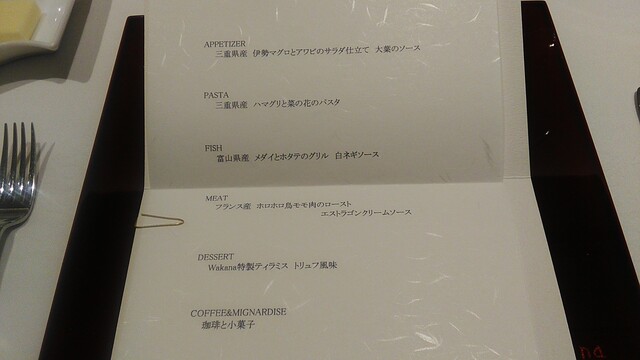 APPETIZER
三重県産 伊勢マグロとアワビのサラダ仕立て 大葉のソース
PASTA
三重県産 ハマグリと菜の花のパスタ
FISH
富山県産 メダイとホタテのグリル 白ネギソース
MEAT
フランス産 ホロホロ鳥モモ肉のロースト
エストラゴンクリームソース
DESSERT
Wakana特製ティラミス トリュフ風味
COFFEE&MIGNARDISE
珈琲と小菓子